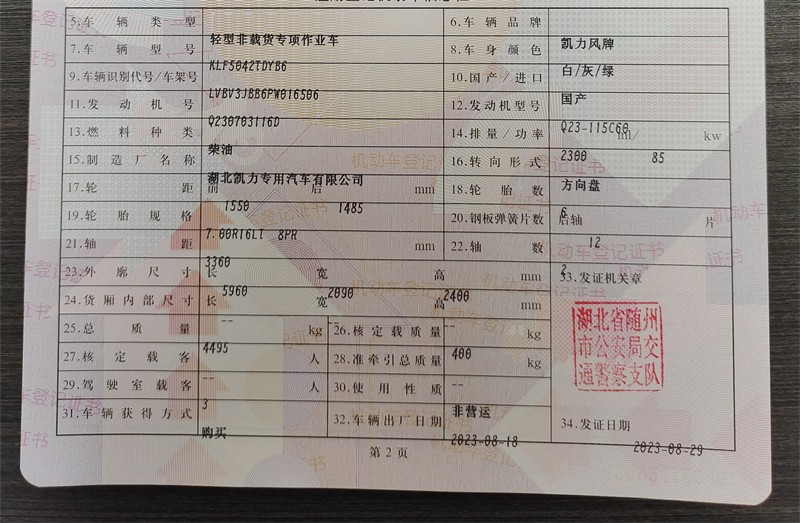 5.车辆类型 轻型非载货专项作业车 6.车辆品牌 凯力风牌
7.车辆型号 KLF5042TDYB6 8.车身颜色 白/灰/绿
9.车辆识别代号/车架号 LVBV3JBB6PW016506 10.国产/进口 国产
11.发动机号 Q230703116D 12.发动机型号 Q23-115C60
13.燃料种类 柴油 14.排量/功率 2300 ml/ 85 kw
15.制造厂名称 湖北凯力专用汽车有限公司 16.转向形式 方向盘
17.轮距 前 1550 后 1485 mm 18.轮胎数 6
19.轮胎规格 7.00R16LT 8PR 20.钢板弹簧片数 后轴 12 片
21.轴距 3360 mm 22.轴数 2
23.外廓尺寸 长 5960 宽 2090 高 2400 mm 33.发证机关章
24.货厢内部尺寸 长 -- 宽 -- 高 -- mm
25.总质量 4495 kg 26.核定载质量 400 kg
27.核定载客 -- 人 28.准牵引总质量 -- kg
29.驾驶室载客 3 人 30.使用性质 非营运
31.车辆获得方式 购买 32.车辆出厂日期 2023-08-18
湖北省随州
市公安局交
通警察支队
34.发证日期 2023-08-29
第2页
机动车登记证书
机动车登记证书